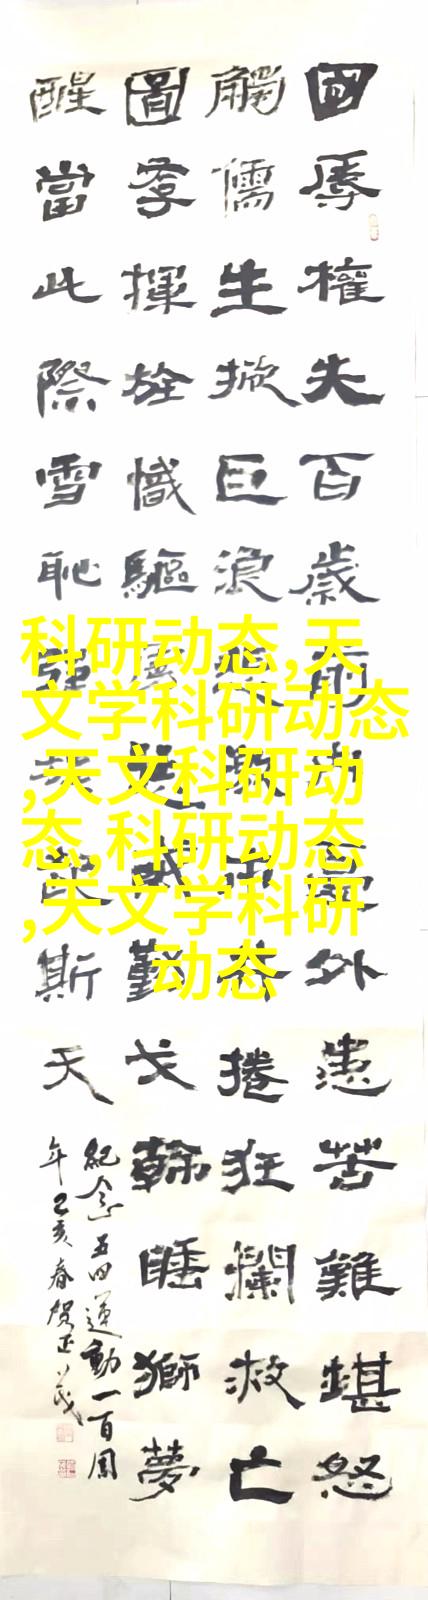 科研动态,天
文学科研动态
,天文科研动
态,科研动态
,天文学科研
动态
國辱權失百歲前外患苦難堪怒
觸儒生掀巨浪捲狂瀾救亡
圖存揮旌幟驅戈睡獅夢
醒當此際雪恥強斯天
紀念五四運動一百周
年己亥春賀正茂